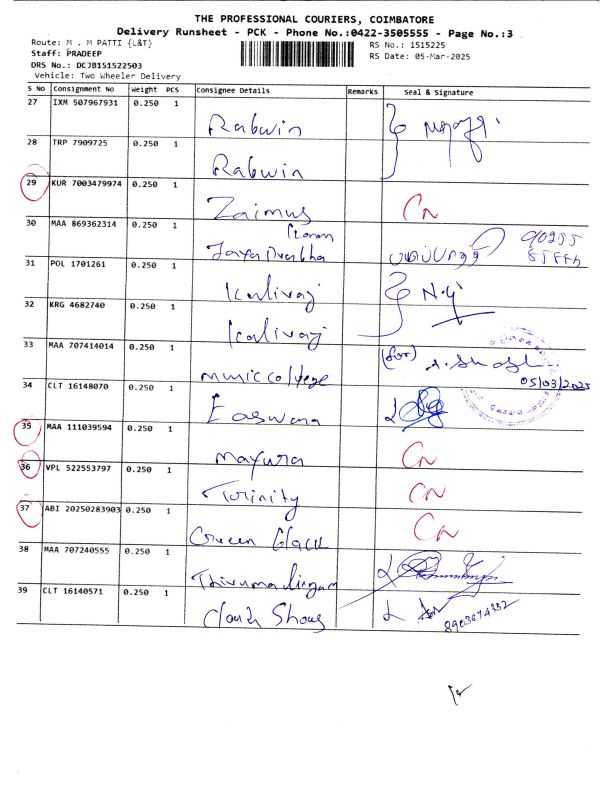 THE PROFESSIONAL COURIERS, COIMBATORE
Delivery Runsheet - PCK - Phone No.:0422-3505555 - Page No.:3
Route: M . M PATTI {L&T} RS No.: 1515225
Staff: PRADEEP RS Date: 05-Mar-2025
DRS No.: DCJB151522503
Vehicle: Two Wheeler Delivery
S No Consignment No Weight PCS Consignee Details Remarks Seal & Signature
27 IXM 507967931 0.250 1
Rabwin
28 TRP 7909725 0.250 1
Rabwin
29 KUR 7003479974 0.250 1
Zaimus CN
30 MAA 869362314 0.250 1
Jayaprabha
31 POL 1701261 0.250 1
Kalivaj
32 KRG 4682740 0.250 1
Kalivaj
33 MAA 707414014 0.250 1 (for)
Music college 05/03/2025
34 CLT 16148070 0.250 1
Easwara
35 MAA 111039594 0.250 1
Mayura CN
36 VPL 522553797 0.250 1
Torinity CN
37 ABI 20250283903 0.250 1
Green Glack CN
38 MAA 707240555 0.250 1
Thirumalingam
39 CLT 16140571 0.250 1
8903674332